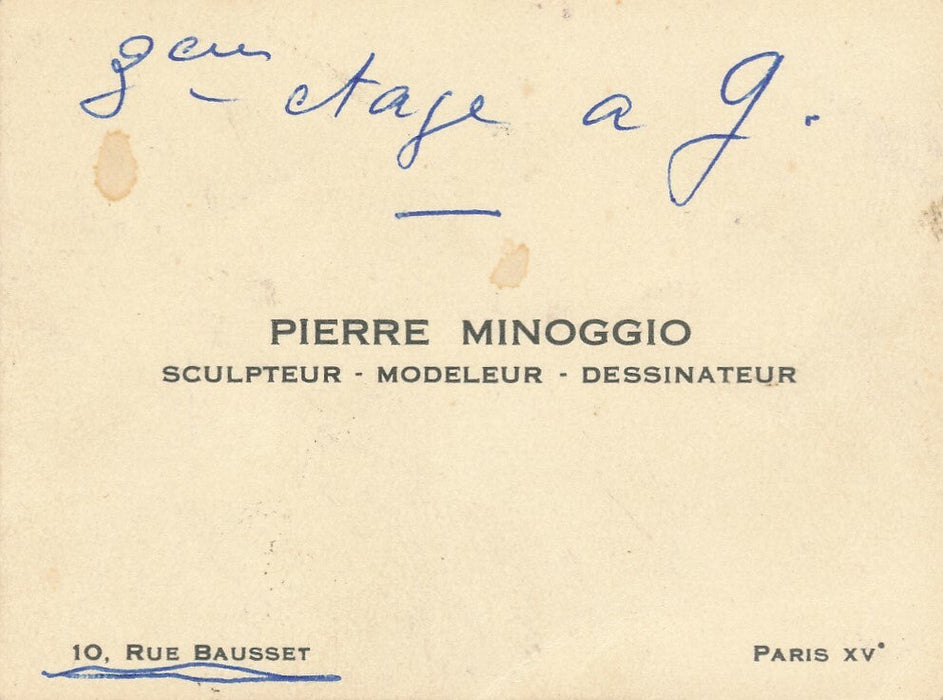 8em etage a g.
PIERRE MINOGGIO
SCULPTEUR - MODELEUR - DESSINATEUR
10, RUE BAUSSET
PARIS XVe